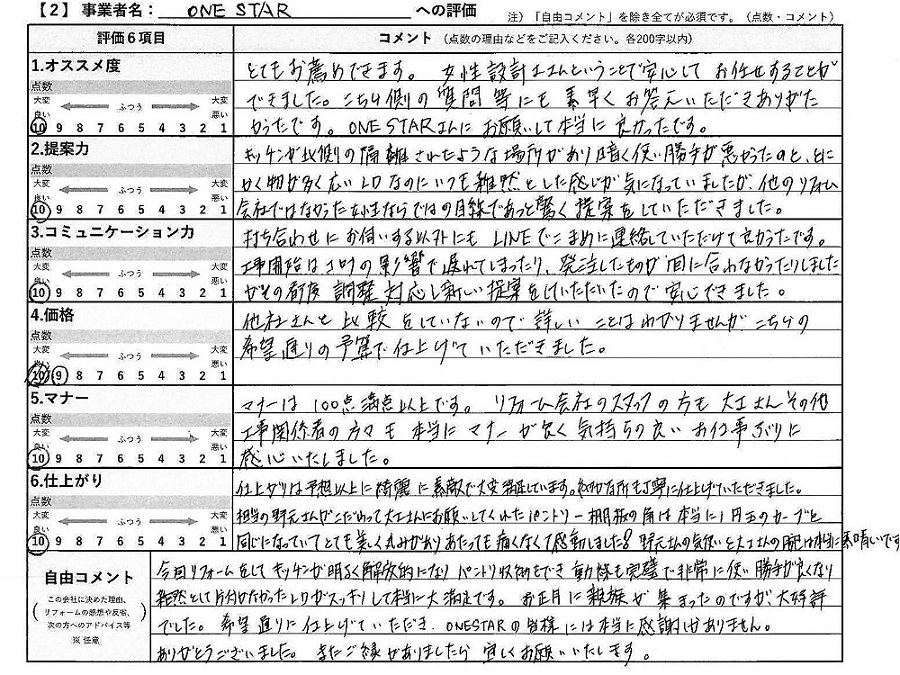 【2】事業者名： ONE STAR への評価
注）「自由コメント」を除き全てが必須です。（点数・コメント）
評価６項目
コメント（点数の理由などをご記入ください。各200字以内）
1.オススメ度
点数
大変良い ふつう 大変悪い
10 9 8 7 6 5 4 3 2 1
とてもお薦めできます。 女性設計士さんということで安心して お任せすることが
できました。こちら側の 質問 等にも 素早く お答えいただきありがた
かったです。 ONE STARさんに お願いして本当に 良かったです。
2.提案力
点数
大変良い ふつう 大変悪い
10 9 8 7 6 5 4 3 2 1
キッチンが北側の隔離されたような場所があり暗く使い勝手が悪かったのと、とに
かく物が多く広いLDなのにいつも雑然とした感じが気になっていましたが、他のリフォーム
会社ではなかった女性ならではの目線であっと驚く提案をしていただきました。
3.コミュニケーション力
点数
大変良い ふつう 大変悪い
10 9 8 7 6 5 4 3 2 1
打ち合わせに お伺いする以外にも LINEでこまめに連絡していただけて良かったです。
工事開始は コロナの影響で遅れてしまったり、発注したものが間に合わなかったりしました
がその都度 調整 対応し新しい提案をしていただいたので安心できました。
4.価格
点数
大変良い ふつう 大変悪い
10 9 8 7 6 5 4 3 2 1
他社さんと 比較 をしていないので 詳しい ことはわかりませんがこちらの
希望通りの予算で仕上げていただきました。
5.マナー
点数
大変良い ふつう 大変悪い
10 9 8 7 6 5 4 3 2 1
マナーは 100点満点以上です。 リフォーム会社のスタッフの方も 大工さんその他
工事関係者の方々も 本当に マナーが良く 気持ちの良い お仕事ぶりに
感心いたしました。
6.仕上がり
点数
大変良い ふつう 大変悪い
10 9 8 7 6 5 4 3 2 1
仕上がりは予想以上に綺麗に素敵で大変満足しています。細かな所も丁寧に仕上げていただきました。
担当の野元さんがこだわって大工さんにお願いしてくれたパントリー棚板の角は本当に1円玉のカーブと
同じになっていてとても美しく丸みがありあたっても痛くなくて感動しました！野元さんの気使いと大工さんの腕は本当に素晴しいです
自由コメント
この会社に決めた理由、
リフォームの感想や反省、
次の方へのアドバイス等
※ 任意
今回リフォームをして キッチンが明るく解放的になり パントリー収納もでき 動線も完璧で非常に使い勝手が良くなり
雑然として片付かなかったLDがスッキリして本当に大満足です。お正月に 親族が 集まったのですが、大好評
でした。 希望通りに仕上げていただき、ONESTARの皆様には本当に感謝しかありません。
ありがとうございました。 またご縁がありましたら 宜しくお願いいたします。